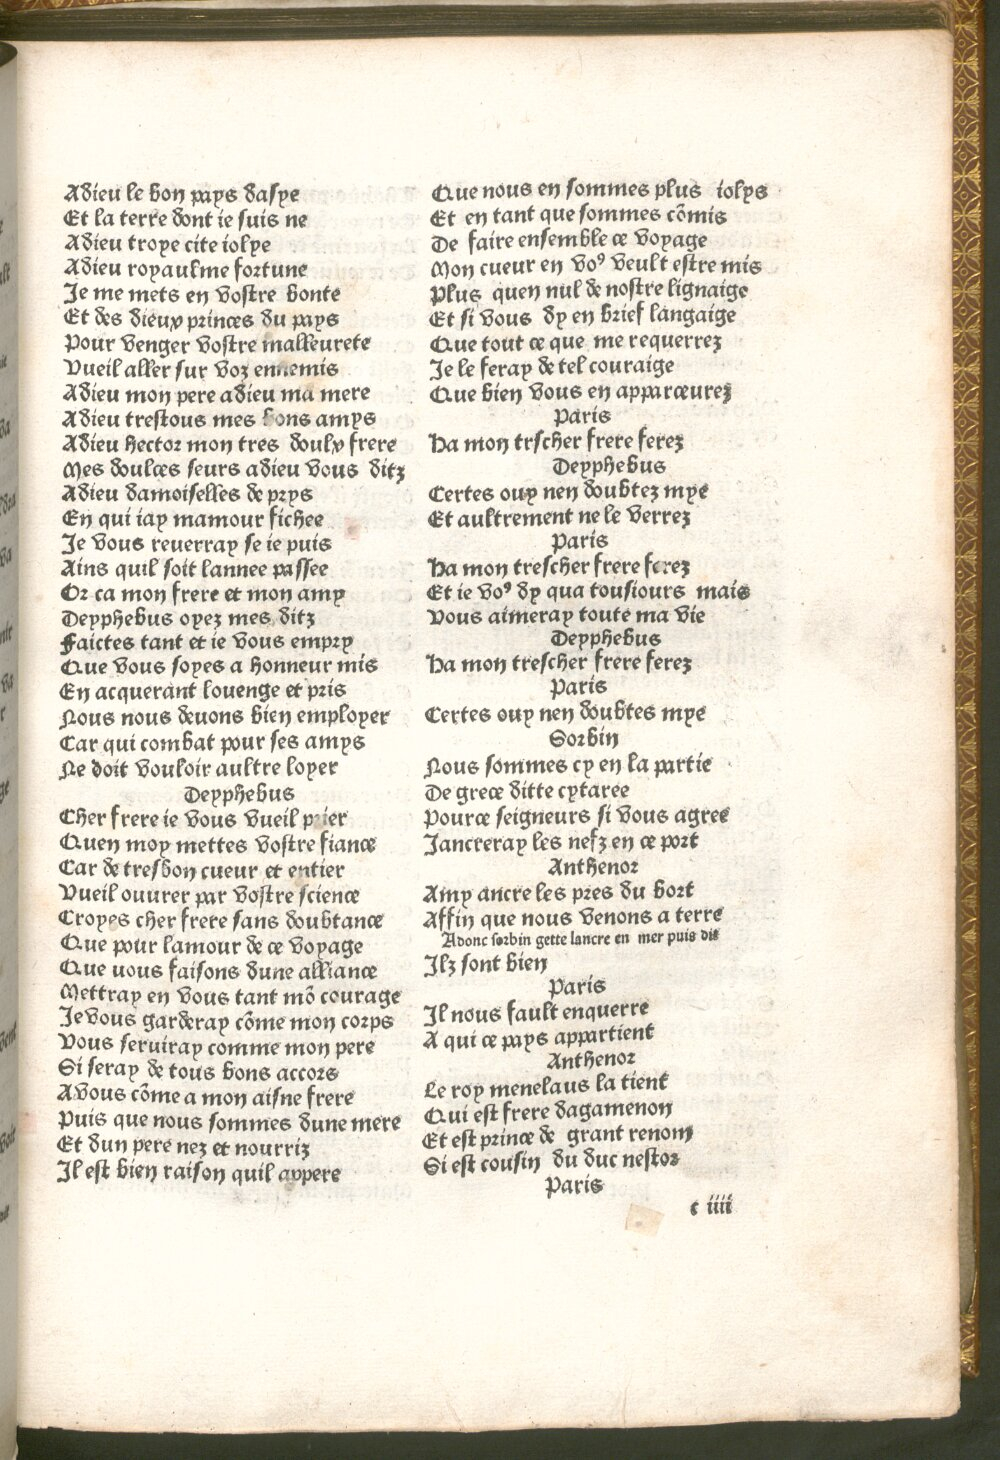 Adieu le bon pays dasye
Et la terre dont ie suis ne
Adieu troye cite iolye
Adieu royaulme fortune
Je me mets en vostre bonte
Et des dieux princes du pays
Pour venger vostre malleurete
Vueil aller sur voz ennemis
Adieu mon pere adieu ma mere
Adieu trestous mes bons amys
Adieu hector mon tres doulx frere
Mes doulces seurs adieu vous ditz
Adieu damoiselles de prys
En qui iay mamour fichee
Je vous reuerray se ie puis
Ains quil soit lannee passee
Or ca mon frere et mon amy
Deyphebus oyez mes ditz
Faictes tant et ie vous empry
Que vous soyes a honneur mis
En acquerant louenge et pris
Nous nous deuons bien employer
Car qui combat pour ses amys
Ne doit vouloir aultre loyer
Deyphebus
Cher frere ie vous vueil prier
Quen moy mettes vostre fiance
Car de tresbon cueur et entier
Vueil ouurer par vostre science
Croyes cher frere sans doubtance
Que pour lamour de ce voyage
Que uous faisons dune alliance
Mettray en vous tant mõ courage
Je vous garderay cõme mon corps
Vous seruiray comme mon pere
Si seray de tous bons accors
A vous cõme a mon aisne frere
Puis que nous sommes dune mere
Et dun pere nez et nourriz
Il est bien raison quil appere
Que nous en sommes plus iolys
Et en tant que sommes cõmis
De faire ensemble ce voyage
Mon cueur en voꝰ veult estre mis
Plus quen nul de nostre lignaige
Et si vous dy en brief langaige
Que tout ce que me requerrez
Je le feray de tel couraige
Que bien vous en apparceurez
Paris
Ha mon trscher frere ferez
Deyphebus
Certes ouy nen doubtez mye
Et aultrement ne le verrez
Paris
Ha mon trescher frere ferez
Et ie voꝰ dy qua tousiours mais
Vous aimeray toute ma vie
Deyphebus
Ha mon trescher frere ferez
Paris
Certes ouy nen doubtes mye
Sorbin
Nous sommes cy en la partie
De grece ditte cytaree
Pource seigneurs si vous agree
Jancreray les nefz en ce port
Anthenor
Amy ancre les pres du bort
Affin que nous venons a terre
Adonc sorbin gette lancre en mer puis dit
Ilz sont bien
Paris
Il nous fault enquerre
A qui ce pays appartient
Anthenor
Le roy menelaus la tient
Qui est frere dagamenon
Et est prince de grant renom
Si est cousin du duc nestor
Paris
c iiii